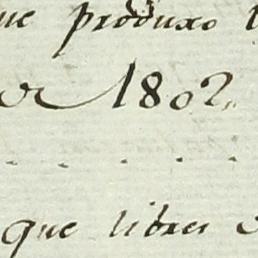 que produxo
1802.
que libres